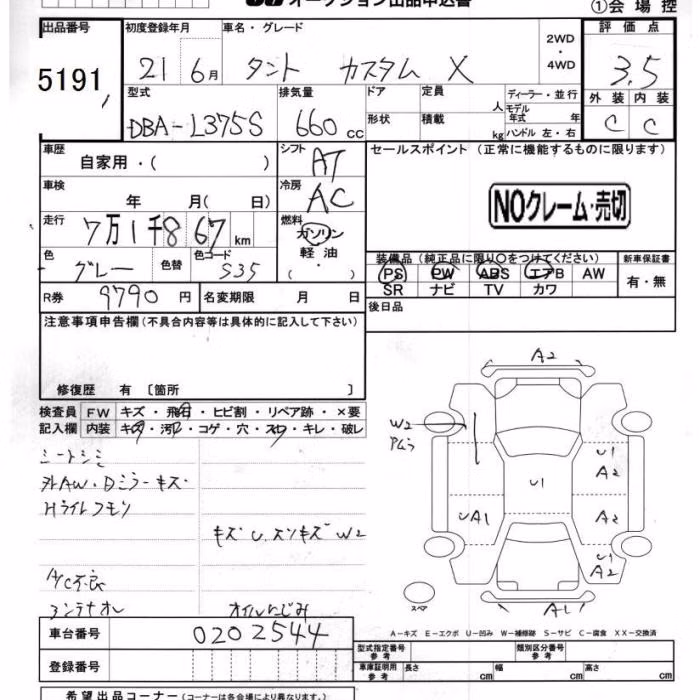 オークション出品申込書
①会場控
出品番号 初度登録年月 車名・グレード 2WD・4WD 評価点
5191 21 6月 タント カスタム X 3.5
型式 排気量 ドア 定員 人 ディーラー・並行 外装 内装
モデル年式 年
DBA-L375S 660cc 形状 積載 kg ハンドル 左・右 C C
車歴 シフト セールスポイント (正常に機能するものに限ります)
自家用・( ) AT
車検 冷房
年 月( 日) AC NOクレーム・売切
走行 燃料
7万1千867km ガソリン
軽油
色 色替 色コード ・( )
グレー S35
装備品 (純正品に限り○をつけてください) 新車保証書
PS PW ABS エアB AW 有・無
SR ナビ TV カワ
R券 9790円 名変期限 月 日 後日品
注意事項申告欄 (不具合内容等は具体的に記入して下さい)
修復歴 有 〔箇所 〕
検査員 FW キズ・飛石・ヒビ割・リペア跡・×要
記入欄 内装 キズ・汚れ・コゲ・穴・スレ・キレ・破レ
シートシミ
外AW・Dミラーキズ
Hライトクモリ
キズ U.スリキズ W2
A/C不良
オイルにじみ
A2
W2
U1
A2
U1
UA1
A2
U1
A2
A1
スペア
A-キズ E-エクボ U-凹み W-補修跡 S-サビ C-腐食 XX-交換済
車台番号 0202544
型式指定番号 参考 類別区分番号 参考
登録番号 車庫証明用 参考 長さ cm 幅 cm 高さ cm
希望出品コーナー (コーナーは各会場により異なります)